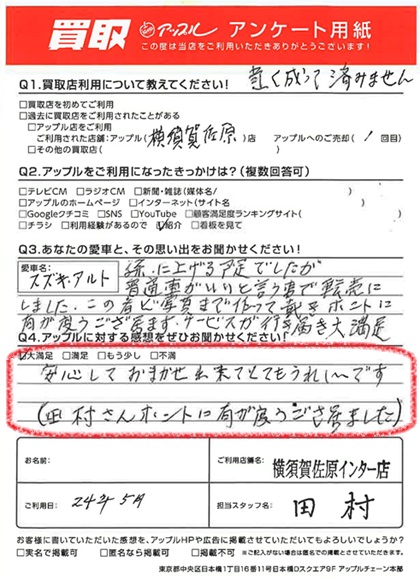 買取 アップル アンケート用紙
この度は当店をご利用いただきありがとうございます!
Q1.買取店利用について教えてください! 遅く成って済みません
□買取店を初めてご利用
□過去に買取店をご利用されたことがある
□アップル店をご利用
ご利用された店舗:アップル(横須賀佐原)店 アップルへのご売却( 1 回目)
□その他の買取店( )
Q2.アップルをご利用になったきっかけは?(複数回答可)
□テレビCM □ラジオCM □新聞・雑誌(媒体名/ )
□アップルのホームページ □インターネット(サイト名 )
□Googleクチコミ □SNS □YouTube □顧客満足度ランキングサイト( )
□チラシ □利用経験があるので ☑紹介 □看板を見て
Q3.あなたの愛車と、その思い出をお聞かせください!
愛車名: スズキ・アルト
孫に上げる予定でしたが
普通車がいいと言う事で転売に
しました。この者ど写真まで作って戴きホントに
有が度うござ居ます、サービスが行き届き大満足
Q4.アップルに対する感想をぜひお聞かせください!
☑大満足 □満足 □もう少し □不満
安心しておまかせ出来てとてもうれしいです
(田村さんホントに有が度うござ居ました)
お名前:
ご利用店舗名: 横須賀佐原インター店
ご利用日: 24年5月
担当スタッフ名: 田村
お客様に書いていただいた感想を、アップルHPや広告に掲載させていただいてもよろしいでしょうか?
□実名で掲載可 □匿名なら掲載可 □掲載不可 ※ご記入がない場合は匿名での掲載とさせていただきます。
東京都中央区日本橋1丁目16番11号日本橋Dスクエア9F アップルチェーン本部